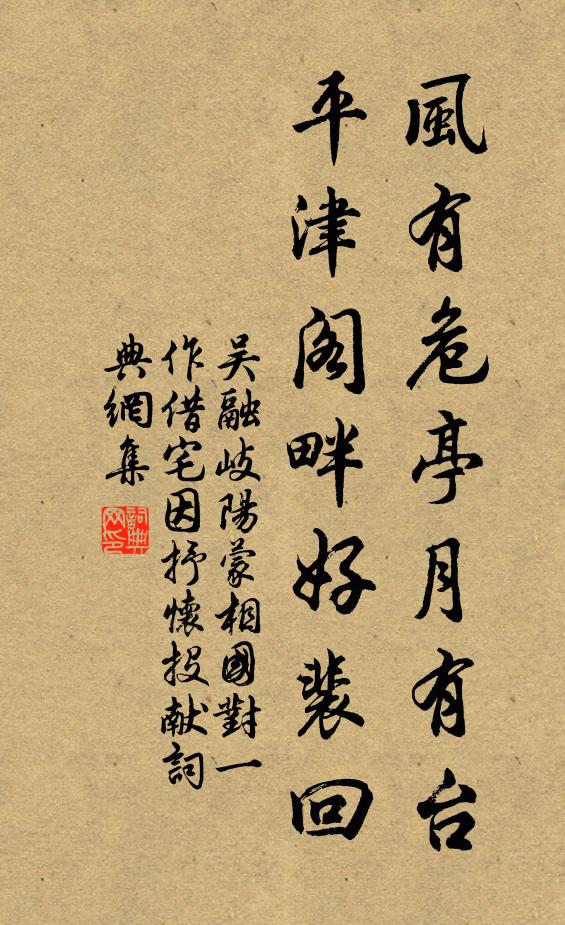 風有危亭月有台
平津阁畔好裴回
吴融岐陽蒙相國對一
作借宅因抒懷投献詞
典網集
詞典
网印